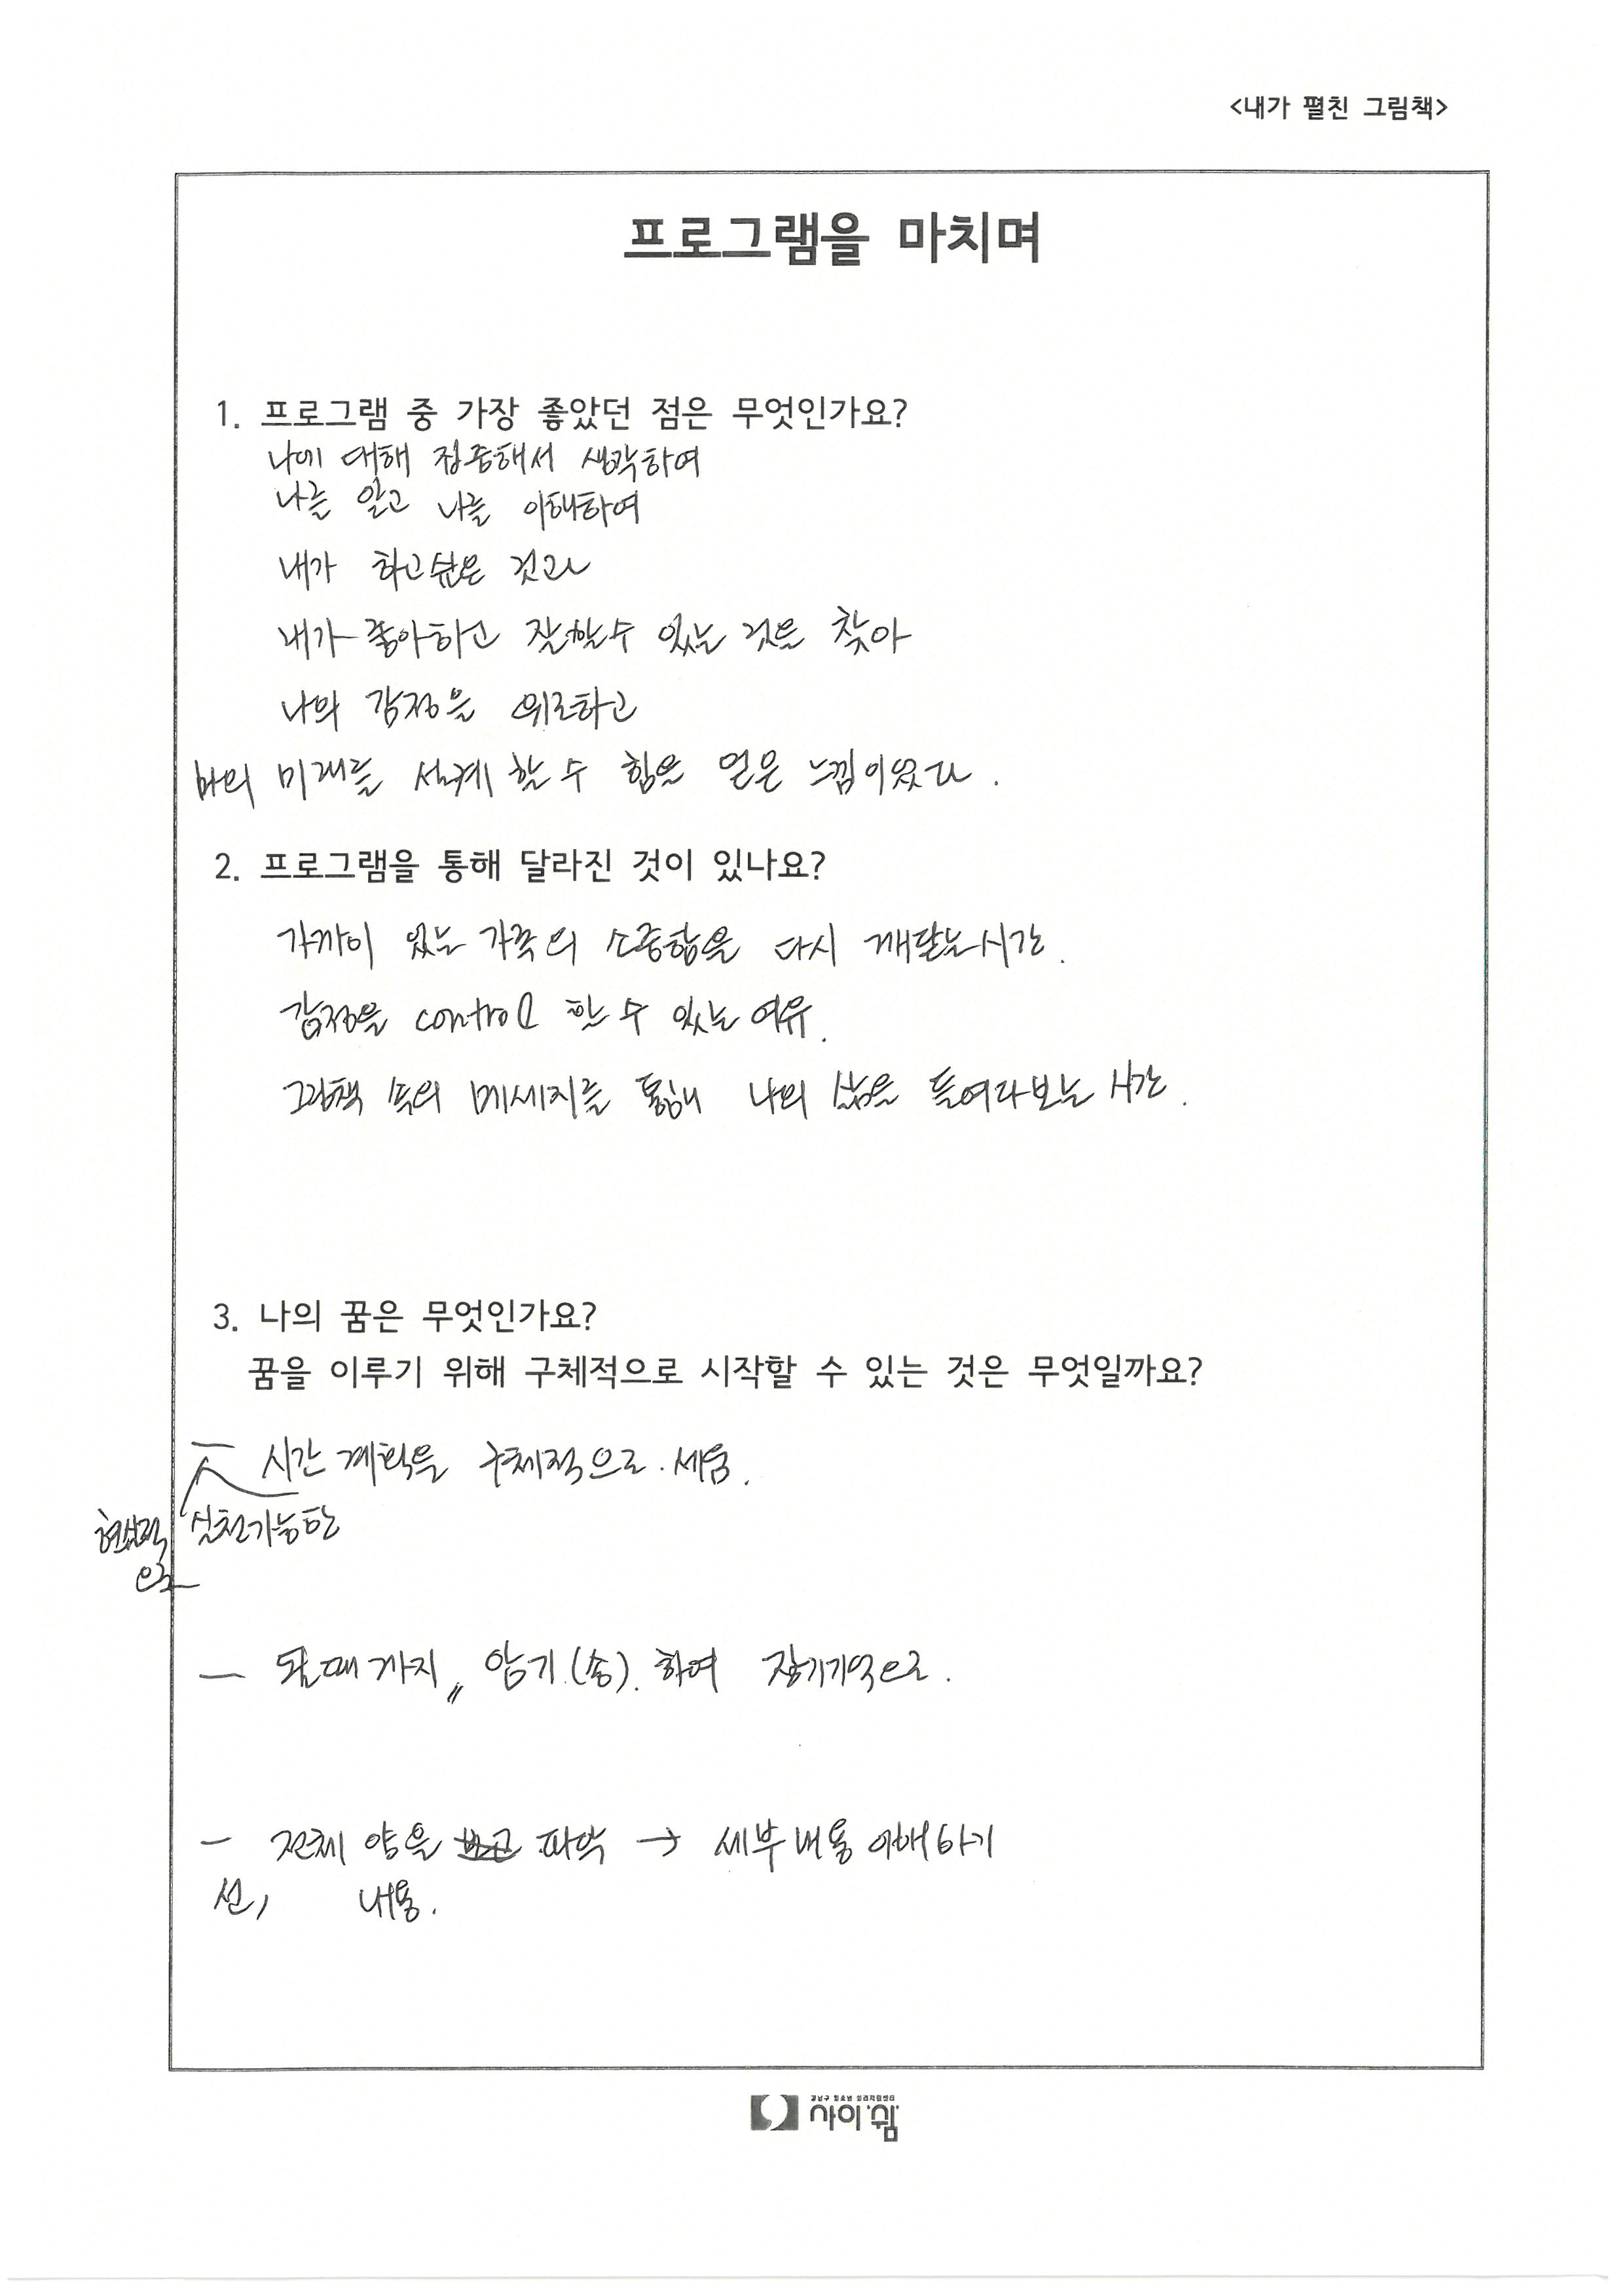 <내가 펼친 그림책>
프로그램을 마치며
1. 프로그램 중 가장 좋았던 점은 무엇인가요?
나에 대해 집중해서 생각하여
나를 알고 나를 이해하여
내가 하고싶은 것과
내가 좋아하고 잘할수 있는 것을 찾아
나의 감정을 위로하고
나의 미래를 설계 할 수 힘을 얻은 느낌이었다.
2. 프로그램을 통해 달라진 것이 있나요?
가까이 있는 가족의 소중함을 다시 깨닫는시간.
감정을 control 할 수 있는 여유.
그림책 속의 메세지를 통해 나의 삶을 들여다보는 시간.
3. 나의 꿈은 무엇인가요?
꿈을 이루기 위해 구체적으로 시작할 수 있는 것은 무엇일까요?
— 시간 계획을 구체적으로. 세움.
현실적 실천가능한
으로
— 될때 까지〃 암기.(송). 하여 장기기억으로.
— 전체 양을 파악 → 세부내용 이해하기
선, 내용.
강남구 청소년 심리지원센터
사이쉼